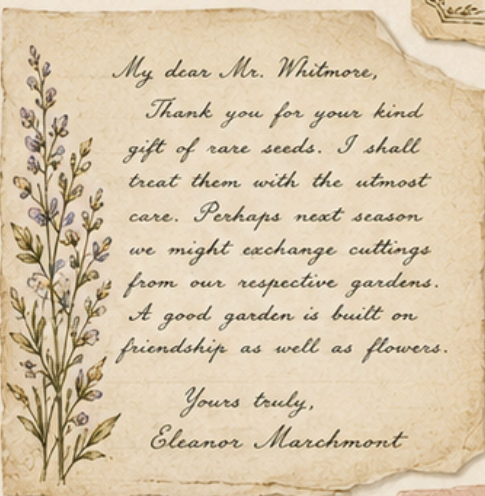 My dear Mr. Whitmore,
Thank you for your kind
gift of rare seeds. I shall
treat them with the utmost
care. Perhaps next season
we might exchange cuttings
from our respective gardens.
A good garden is built on
friendship as well as flowers.
Yours truly,
Eleanor Marchmont